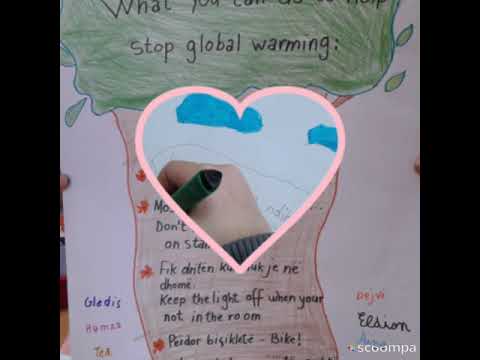 What you can do to help
stop global warming:
Don't
on
Fik dritën je në
dhomë.
Keep the light off when your
not in the room
Përdor biçikletë - Bike!
Gledis
Tea
Dejvi
Eldion
scoompa